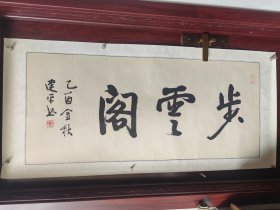 步雲阁
乙酉金秋
建平书